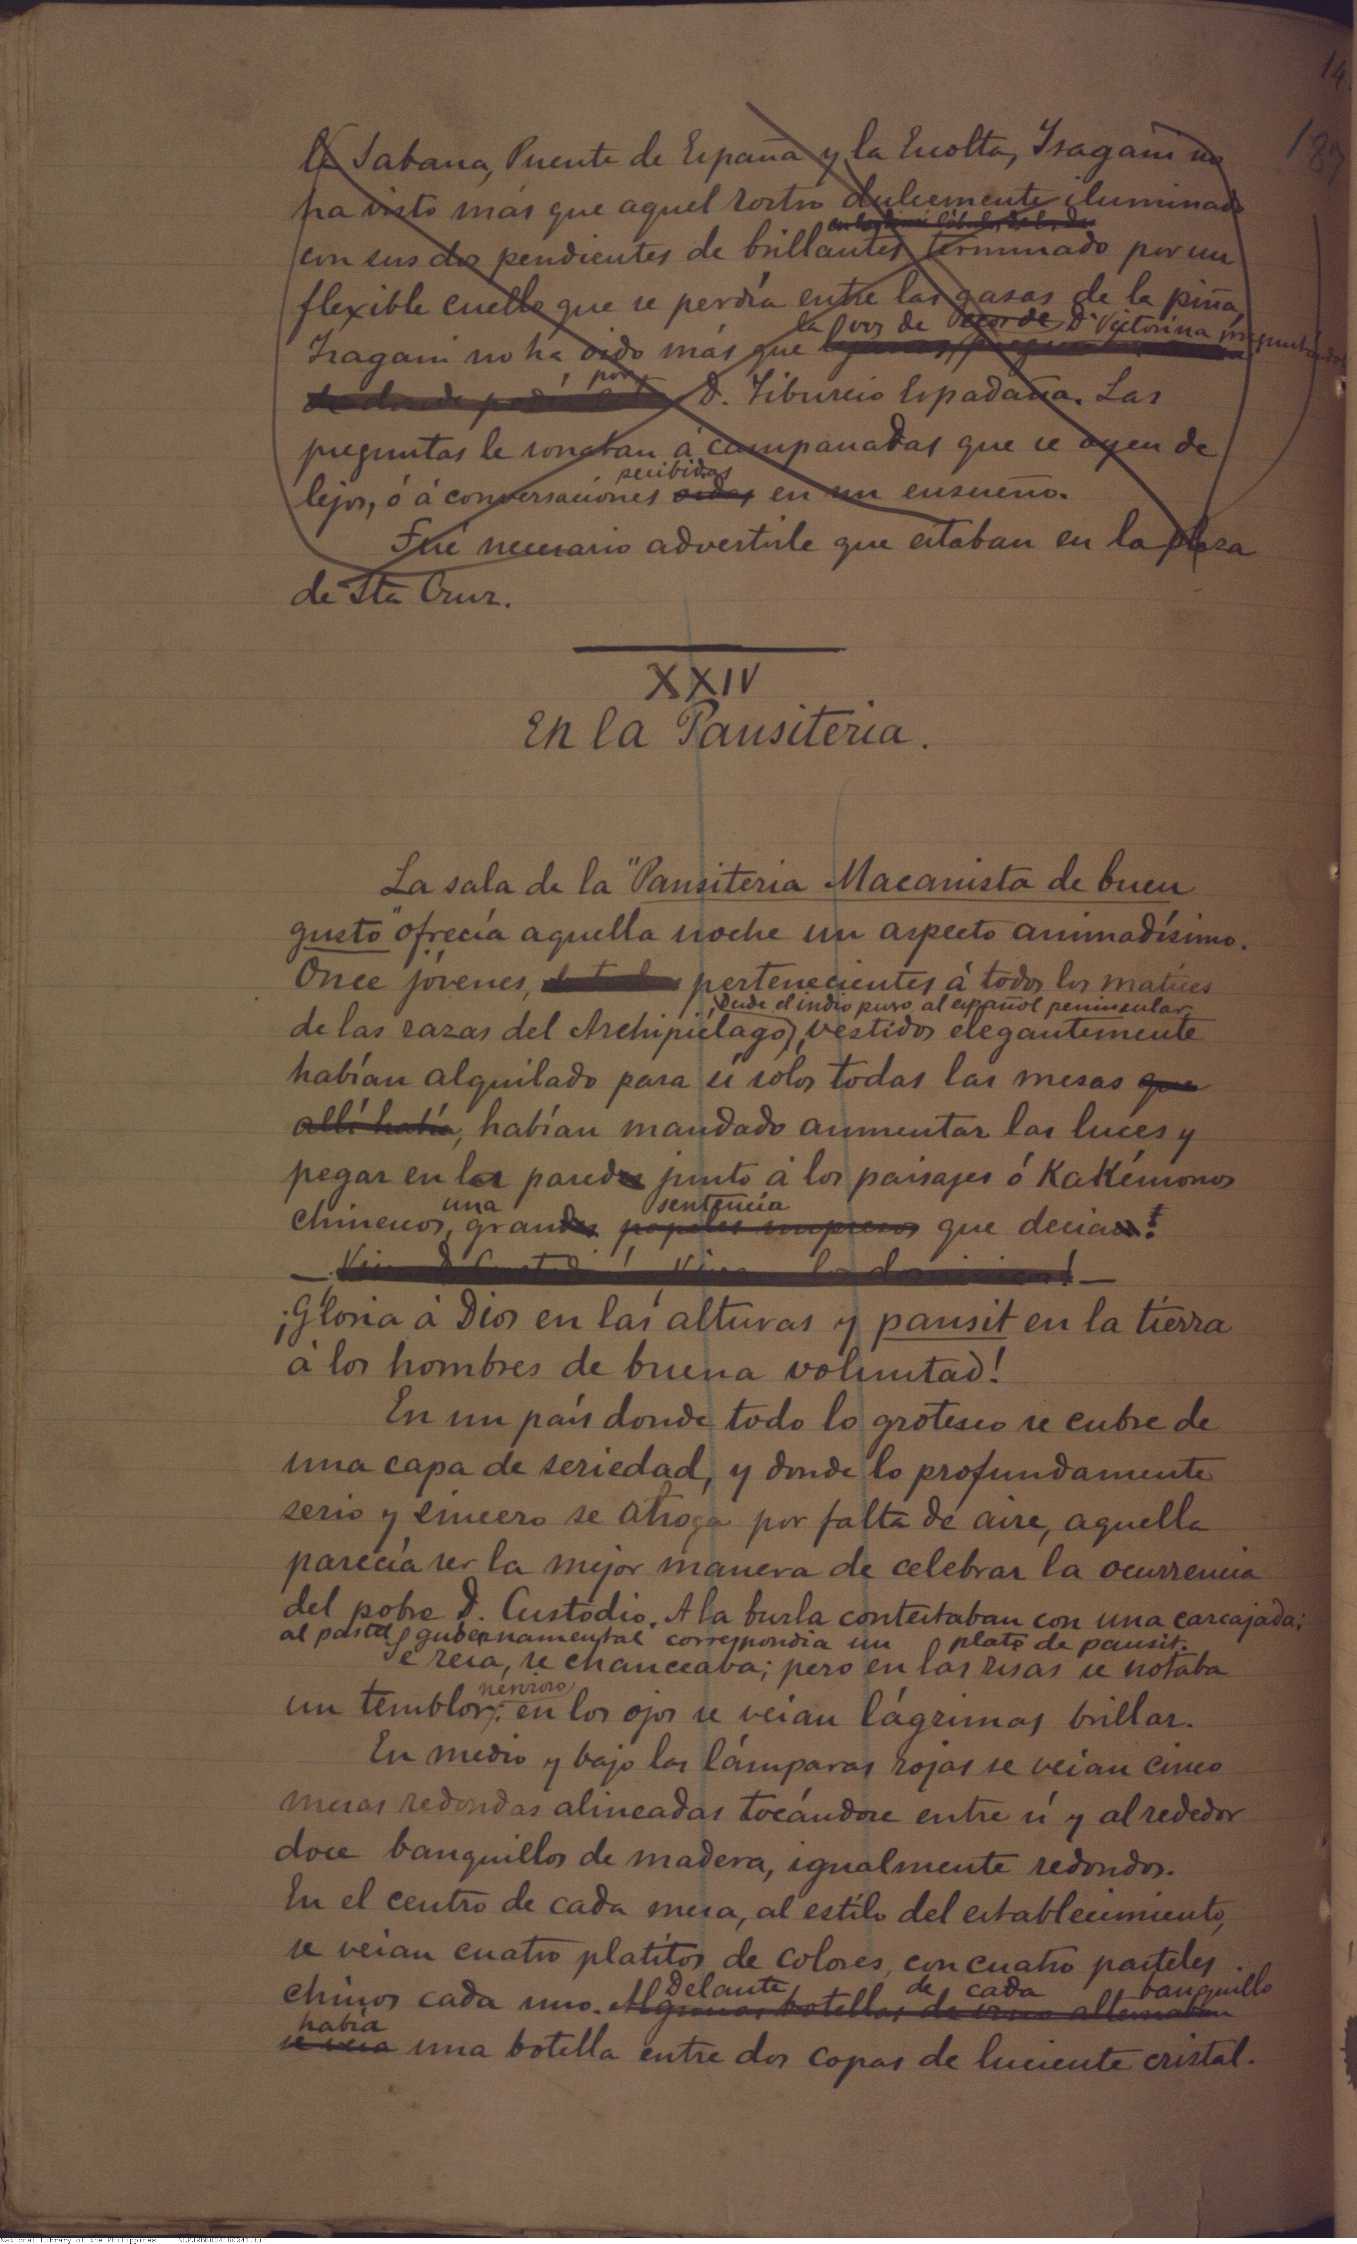 14
187
de Sabana, Puente de España y la Escolta, Isagani no
ha visto más que aquel rostro dulcemente iluminado
con sus dos pendientes de brillantes terminado por un
flexible cuello que se perdía entre las gasas de la piña,
la voz de Dª Victorina preguntando
Isagani no ha oido más que
por
D. Tiburcio Espadaña. Las
preguntas le sonaban á campanadas que se oyen de
percibidas
lejos, ó á conversaciones oidas en un ensueño.
Fué necesario advertirle que estaban en la plaza
de Sta Cruz.
XXIV
En la Pansiteria.
La sala de la "Pansiteria Macanista de buen
gusto" ofrecía aquella noche un aspecto animadísimo.
Once jóvenes, pertenecientes á todos los matices
desde el indio puro al español peninsular
de las razas del Archipiélago, vestidos elegantemente
habían alquilado para sí solos todas las mesas que
allí había, habían mandado aumentar las luces y
pegar en la pared junto á los paisajes ó Kakémonos
una sentencia
chinescos, grandes papeles impresos que decian:
¡Gloria á Dios en las alturas y pansit en la tierra
á los hombres de buena voluntad!
En un país donde todo lo grotesco se cubre de
una capa de seriedad, y donde lo profundamente
serio y sincero se ahoga por falta de aire, aquella
parecía ser la mejor manera de celebrar la ocurrencia
del pobre D. Custodio. A la burla contestaban con una carcajada;
al pastel gubernamental correspondia un plato de pansit.
Se reia, se chanceaba; pero en las risas se notaba
nervioso
un temblor; en los ojos se veían lágrimas brillar.
En medio y bajo las lámparas rojas se veian cinco
mesas redondas alineadas tocándose entre sí y al rededor
doce banquillos de madera, igualmente redondos.
En el centro de cada mesa, al estilo del establecimiento,
se veian cuatro platitos de colores, con cuatro pasteles
Delante de cada banquillo
chinos cada uno. Algunas botellas de vino alternaban
había
se veia una botella entre dos copas de luciente cristal.
National Library of the Philippines